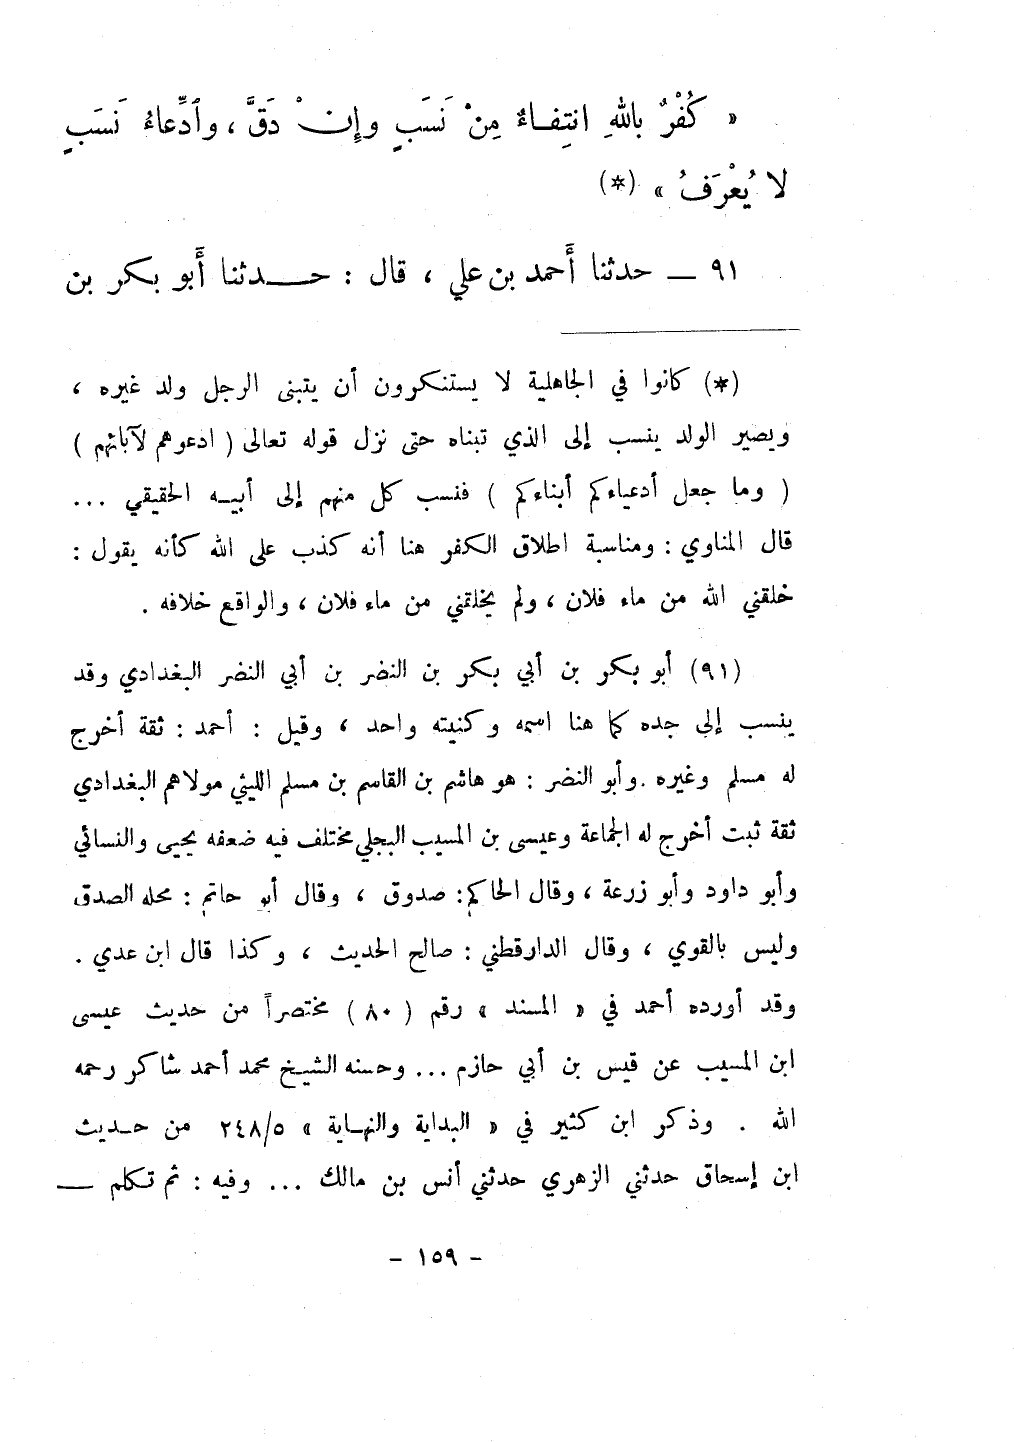 « كُفْرٌ بِاللهِ انتِفاءٌ مِنْ نَسَبٍ وإنْ دَقَّ ، وٱدِّعاءُ نَسَبٍ
لا يُعْرَفُ » (*)
٩١ — حدثنا أَحمد بن علي ، قال : حدثنا أَبو بكر بن
(*) كانوا في الجاهلية لا يستنكرون أن يتبنى الرجل ولد غيره ،
ويصير الولد ينسب إلى الذي تبناه حتى نزل قوله تعالى ( ادعوهم لآبائهم )
( وما جعل أدعياءكم أبناءكم ) فنسب كل منهم إلى أبيه الحقيقي ...
قال المناوي : ومناسبة اطلاق الكفر هنا أنه كذب على الله كأنه يقول :
خلقني الله من ماء فلان ، ولم يخلقني من ماء فلان ، والواقع خلافه .
(٩١) أبو بكر بن أبي بكر بن النضر بن أبي النضر البغدادي وقد
ينسب إلى جده كما هنا اسمه وكنيته واحد ، وقيل : أحمد : ثقة أخرج
له مسلم وغيره . وأبو النضر : هو هاشم بن القاسم بن مسلم الليثي مولاهم البغدادي
ثقة ثبت أخرج له الجماعة وعيسى بن المسيب البجلي مختلف فيه ضعفه يحيى والنسائي
وأبو داود وأبو زرعة ، وقال الحاكم : صدوق ، وقال أبو حاتم : محله الصدق
وليس بالقوي ، وقال الدارقطني : صالح الحديث ، وكذا قال ابن عدي .
وقد أورده أحمد في « المسند » رقم ( ٨٠ ) مختصراً من حديث عيسى
ابن المسيب عن قيس بن أبي حازم ... وحسنه الشيخ محمد أحمد شاكر رحمه
الله . وذكر ابن كثير في « البداية والنهاية » ٢٤٨/٥ من حديث
ابن إسحاق حدثني الزهري حدثني أنس بن مالك ... وفيه : ثم تكلم —
- ١٥٩ -